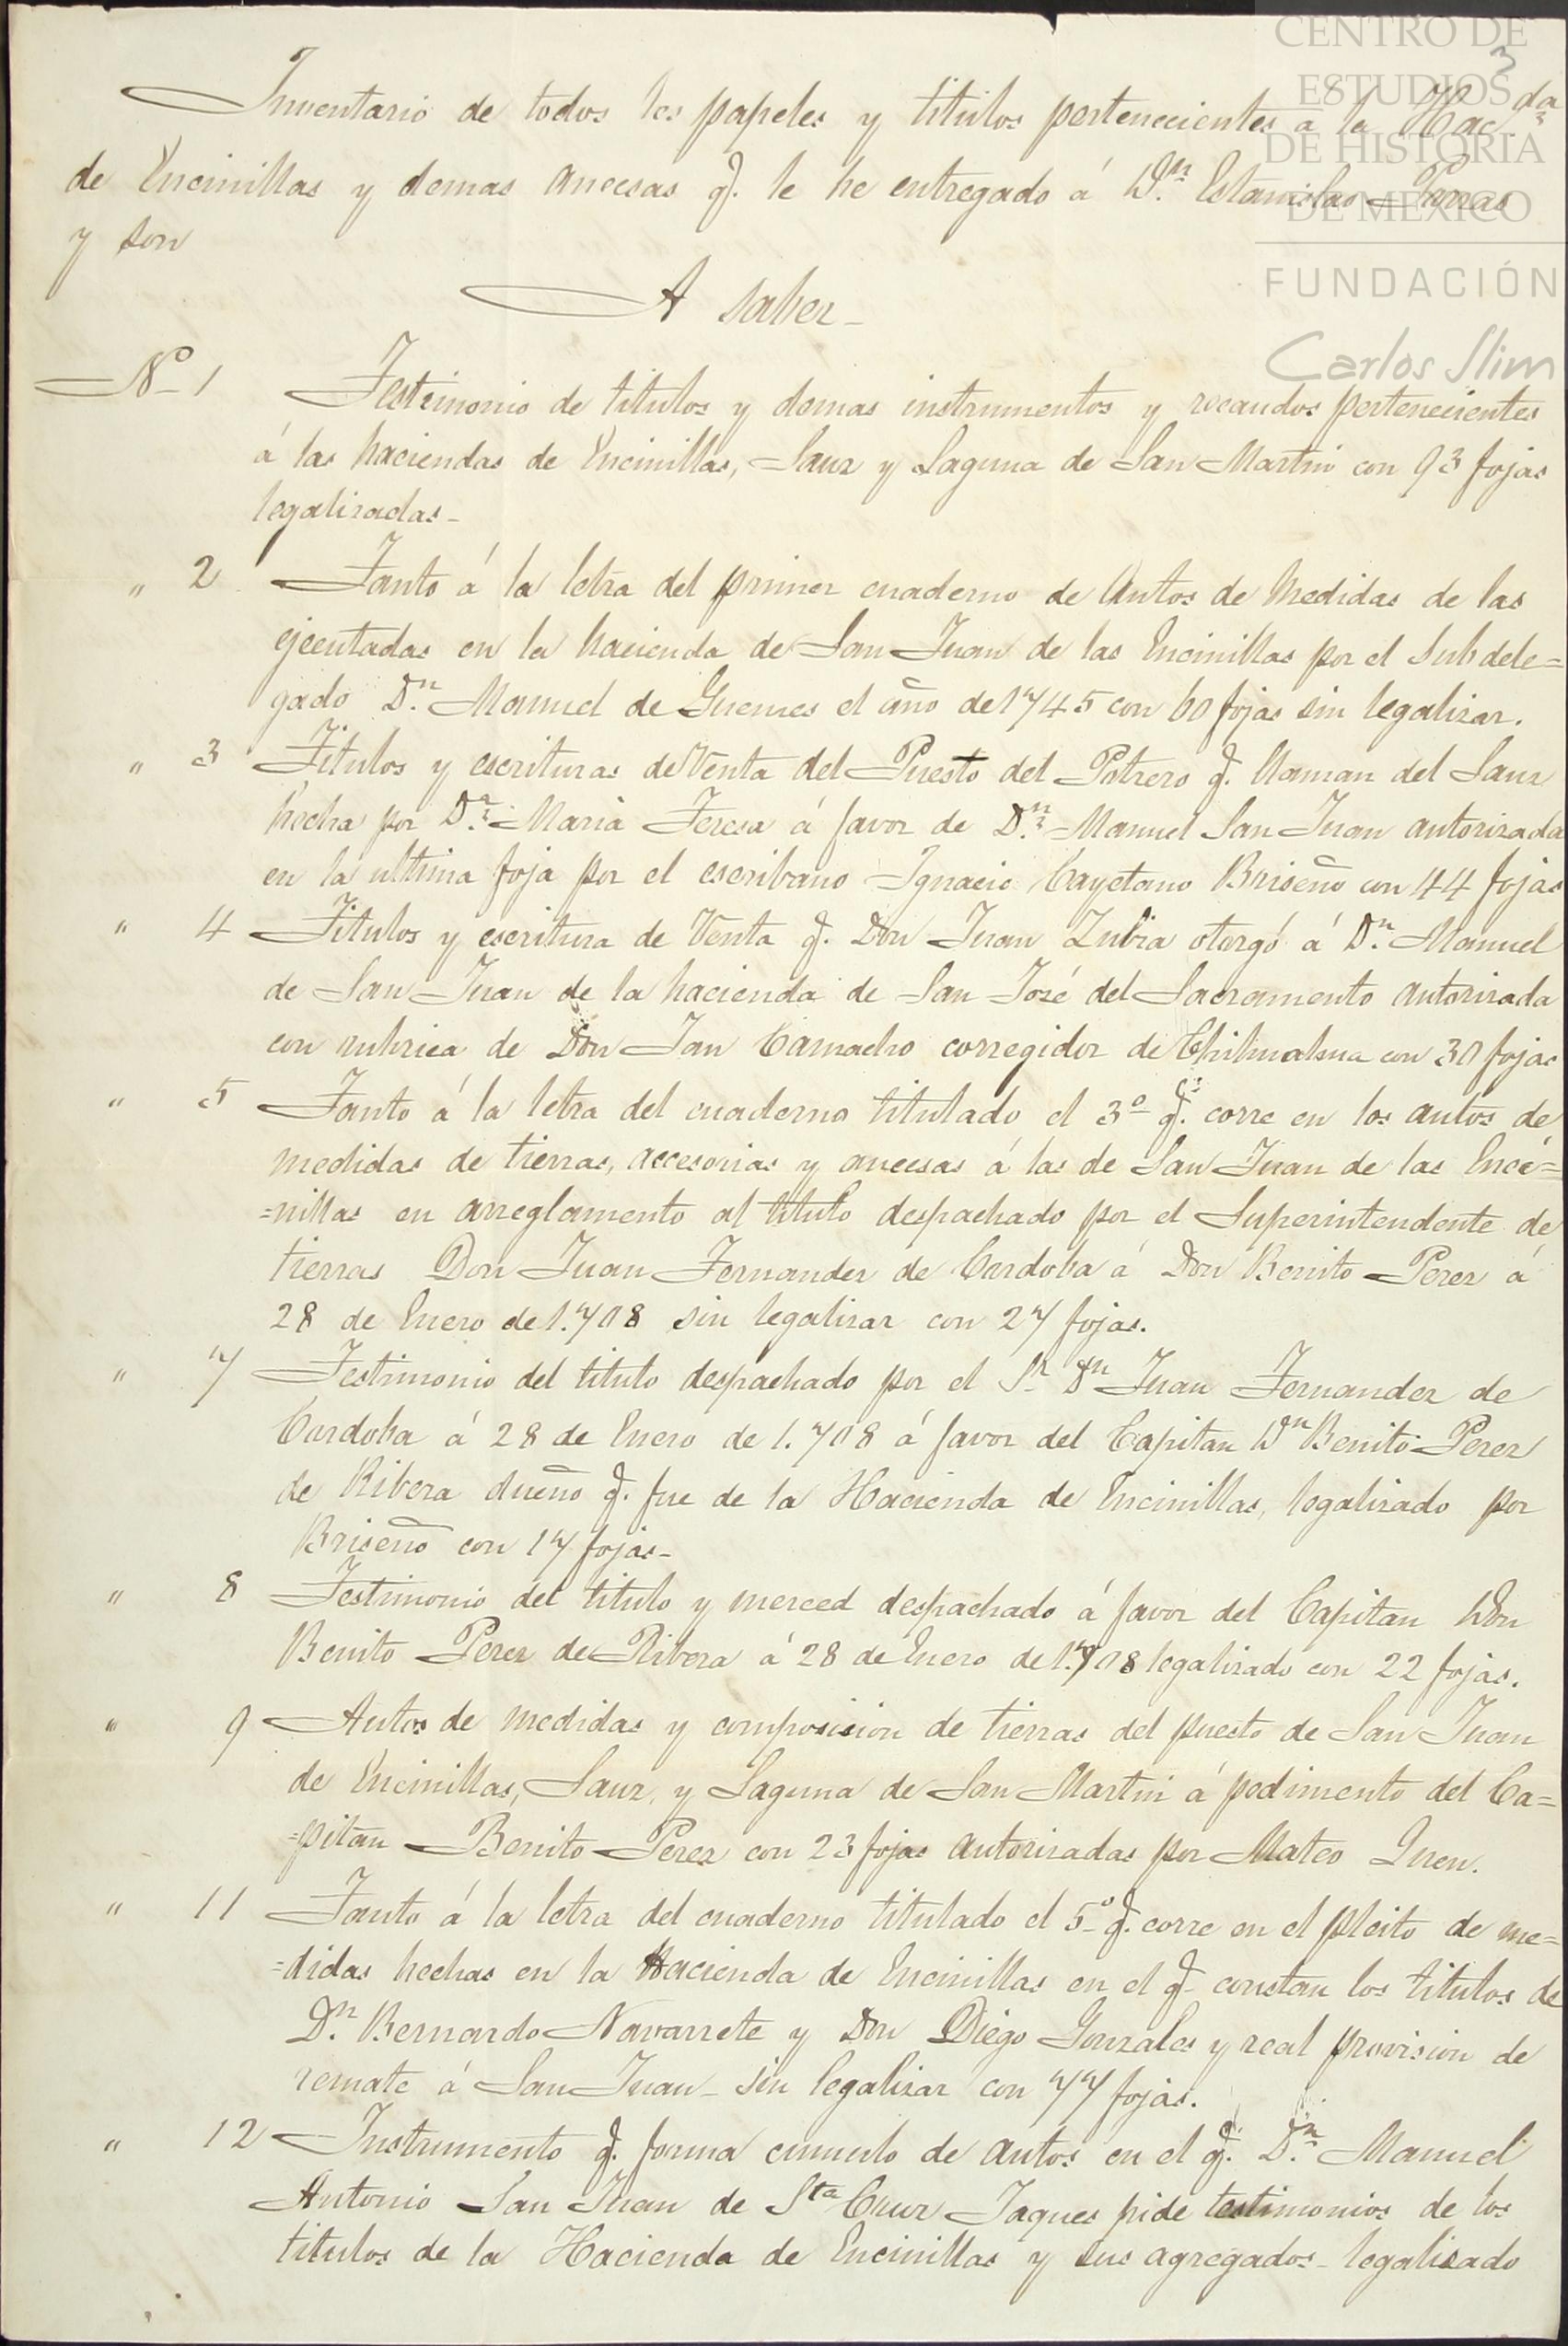 CENTRO DE
ESTUDIOS
DE HISTORIA
DE MÉXICO
FUNDACIÓN
Carlos Slim
3
Inventario de todos los papeles y titulos pertenecientes a la Hac.da
de Encinillas y demas anecsas q. le he entregado á D.n Estanislao Porras
y son
A saber_
No 1 Testimonio de titulos y demas instrumentos y recaudos pertenecientes
á las haciendas de Encinillas, Sauz y Laguna de San Martin con 93 fojas
legalizadas_
" 2 Tanto á la letra del primer cuaderno de Autos de Medidas de las
ejecutadas en la hacienda de San Juan de las Encinillas por el Subdele=
gado D.n Manuel de Guemes el año de 1745 con 60 fojas sin legalizar.
" 3 Titulos y escrituras de Venta del Puesto del Potrero q. llaman del Sauz
hecha por D.a Maria Teresa á favor de D.n Manuel San Juan autorizada
en la ultima foja por el escribano Ignacio Cayetano Briseño con 44 fojas
" 4 Titulos y escritura de Venta q. Don Juan Zubia otorgó á D.n Manuel
de San Juan de la hacienda de San José del Sacramento autorizada
con rubrica de Don Jan Camacho corregidor de Chihuahua con 30 fojas
" 5 Tanto á la letra del cuaderno titulado el 3o q. corre en los autos de
medidas de tierras, accesorias y anecsas á las de San Juan de las Enci=
=nillas en arreglamento al titulo despachado por el Superintendente de
tierras Don Juan Fernandez de Cordoba á Don Benito Perez á
28 de Enero de 1.708 sin legalizar con 27 fojas.
" 7 Testimonio del titulo despachado por el Sr Dn Juan Fernandez de
Cordoba á 28 de Enero de 1.708 á favor del Capitan Dn Benito Perez
de Ribera dueño q. fue de la Hacienda de Encinillas, legalizado por
Briseño con 17 fojas_
" 8 Testimonio del titulo y merced despachado á favor del Capitan Don
Benito Perez de Ribera á 28 de Enero de 1.708 legalizado con 22 fojas.
" 9 Autos de medidas y composision de tierras del puesto de San Juan
de Encinillas, Sauz, y Laguna de San Martin á pedimento del Ca=
=pitan Benito Perez con 23 fojas autorizadas por Mateo
" 11 Tanto á la letra del cuaderno titulado el 5o q. corre en el pleito de me=
=didas hechas en la Hacienda de Encinillas en el q. constan los titulos de
D.n Bernardo Navarrete y Don Diego Gonzales y real provision de
remate á San Juan_ sin legalizar con 77 fojas.
" 12 Instrumento q. forma cumulo de autos en el q. D.n Manuel
Antonio San Juan de Sta Cruz Jaques pide testimonios de los
titulos de la Hacienda de Encinillas y sus agregados_ legalizado